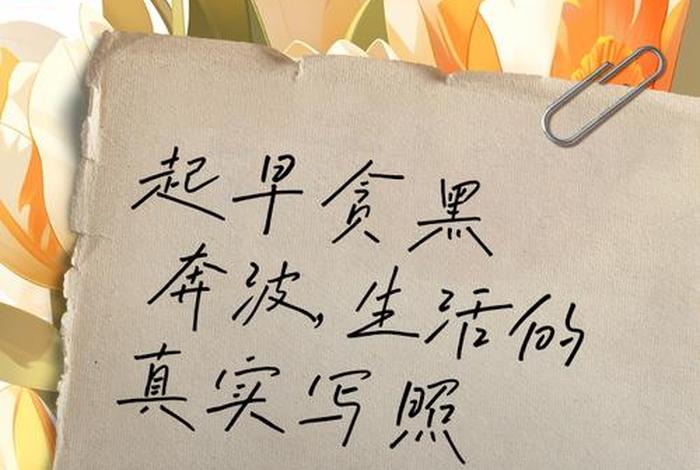 起早贪黑
奔波,生活的
真实写照